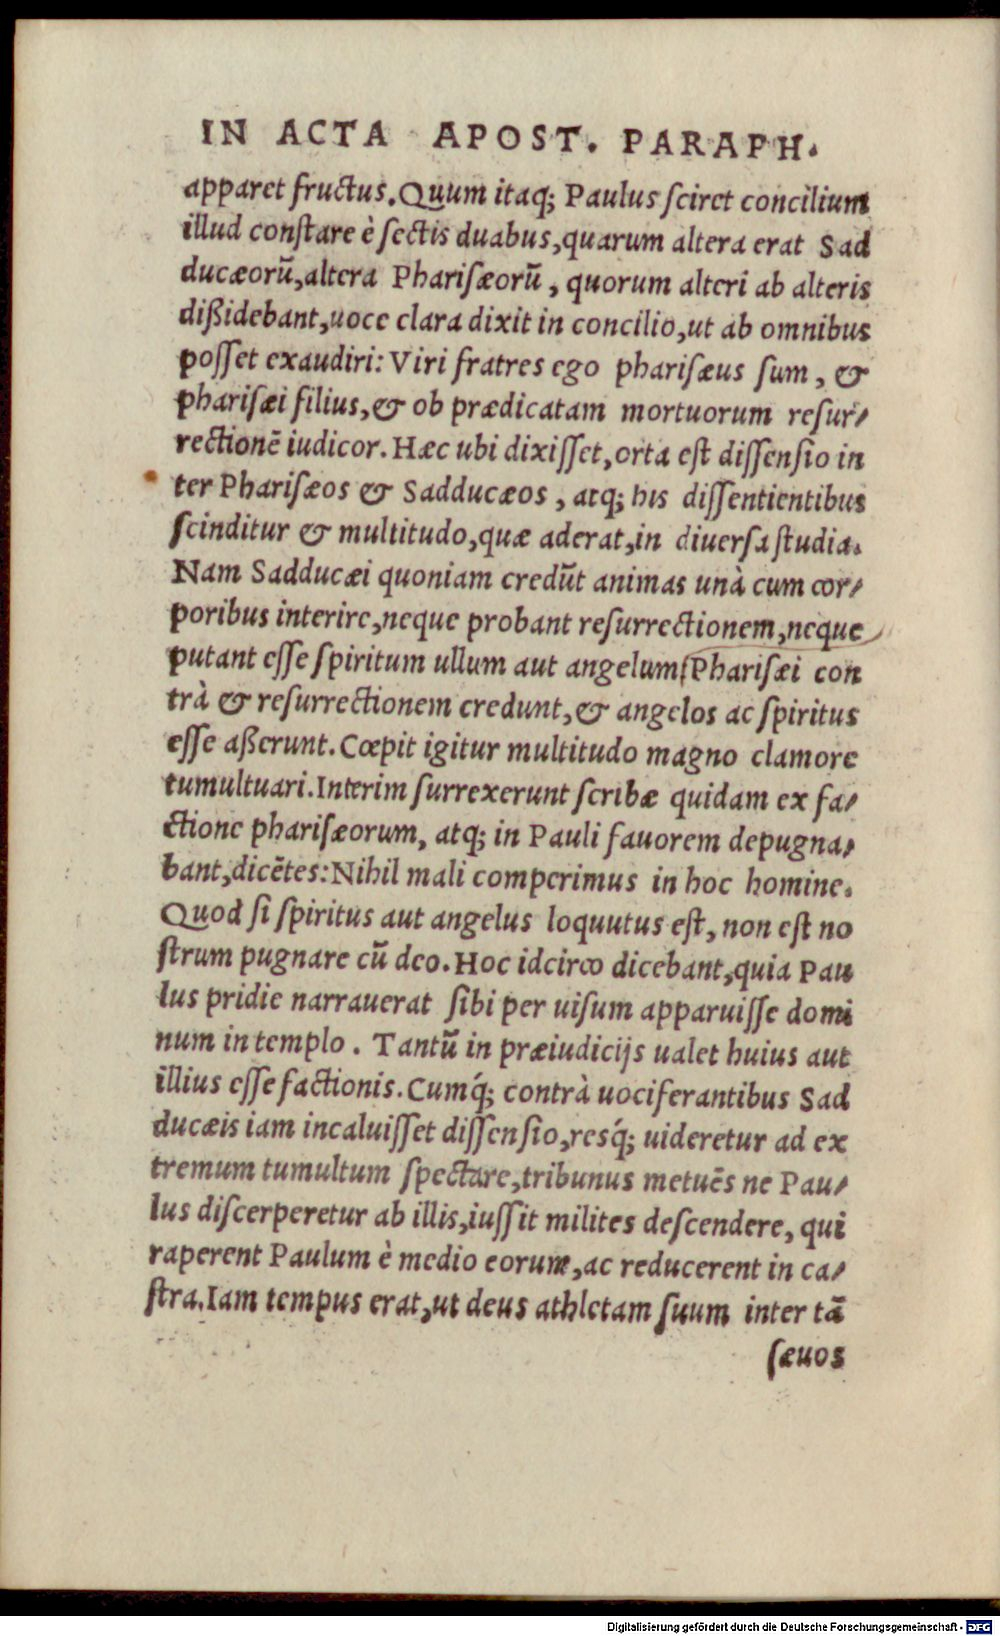 IN ACTA APOST. PARAPH.
apparet fructus. Quum itaq; Paulus ſciret concilium
illud conſtare è ſectis duabus, quarum altera erat Sad
ducæorũ, altera Phariſæorũ, quorum alteri ab alteris
dißidebant, uoce clara dixit in concilio, ut ab omnibus
poſſet exaudiri: Viri fratres ego phariſæus ſum, &
phariſæi filius, & ob prædicatam mortuorum reſur/
rectionẽ iudicor. Hæc ubi dixiſſet, orta eſt diſſenſio in
ter Phariſæos & Sadducæos, atq; his diſſentientibus
ſcinditur & multitudo, quæ aderat, in diuerſa ſtudia.
Nam Sadducæi quoniam credũt animas unà cum cor/
poribus interire, neque probant reſurrectionem, neque
putant eſſe ſpiritum ullum aut angelum. Phariſæi con
trà & reſurrectionem credunt, & angelos ac ſpiritus
eſſe aßerunt. Cœpit igitur multitudo magno clamore
tumultuari. Interim ſurrexerunt ſcribæ quidam ex fa/
ctione phariſæorum, atq; in Pauli fauorem depugna/
bant, dicẽtes: Nihil mali comperimus in hoc homine.
Quod ſi ſpiritus aut angelus loquutus eſt, non eſt no
ſtrum pugnare cũ deo. Hoc idcirco dicebant, quia Pau
lus pridie narrauerat ſibi per uiſum apparuiſſe domi
num in templo. Tantũ in præiudicijs ualet huius aut
illius eſſe factionis. Cumq́; contrà uociferantibus Sad
ducæis iam incaluiſſet diſſenſio, resq́; uideretur ad ex
tremum tumultum ſpectare, tribunus metuẽs ne Pau/
lus diſcerperetur ab illis, iuſſit milites deſcendere, qui
raperent Paulum è medio eorum, ac reducerent in ca/
ſtra. Iam tempus erat, ut deus athletam ſuum inter tã
ſæuos
Digitalisierung gefördert durch die Deutsche Forschungsgemeinschaft - DFG